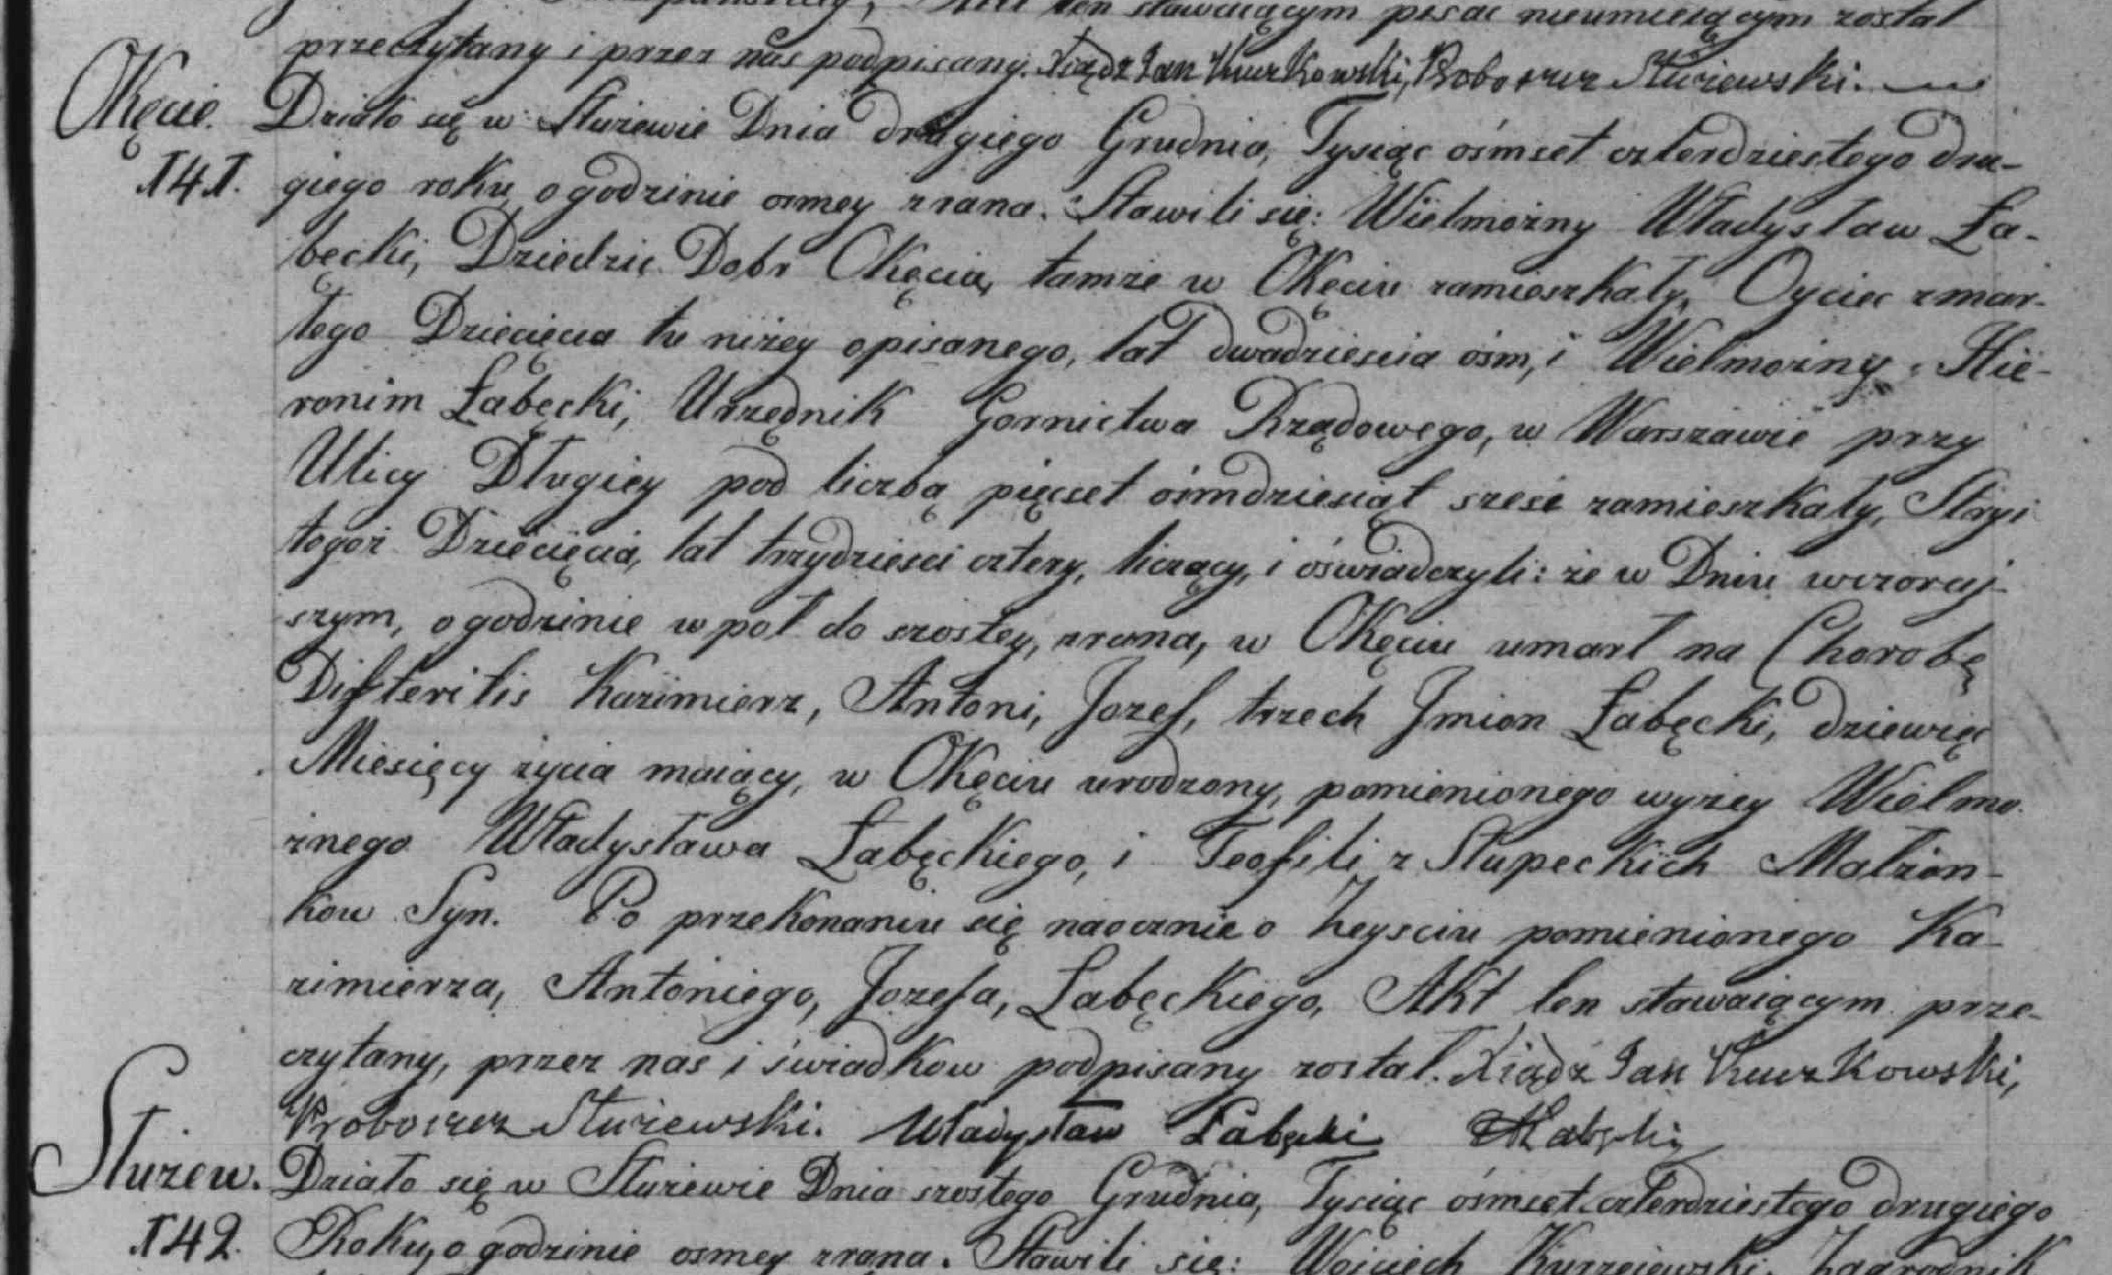 ten stawaiącym pisac nieumieiącym został
przeczytany i przez nas podpisany. Xiądz Jan Kurzkowski, Proboszcz Służewski.
Okęcie. Działo się w Służewie Dnia drugiego Grudnia, Tysiąc ośmset czterdziestego dru-
141. giego roku, o godzinie osmey zrana. Stawili się: Wielmożny Władysław Ła-
bęcki, Dziedzic Dobr Okęcia, tamże w Okęciu zamieszkały, Oyciec zmar-
łego Dziecięcia tu niżey opisanego, lat dwadziescia ośm, i Wielmożny Hie-
ronim Łabęcki, Urzędnik Gornictwa Rządowego, w Warszawie przy
Ulicy Długiey pod liczbą pięcset ośmdziesiąt szesc zamieszkały, Stryi
tegoż Dziecięcia, lat trzydziesci cztery, liczący, i oświadczyli: że w Dniu wczoraj-
szym, o godzinie w poł do szostey, zrana, w Okęciu umarł na Chorobę
Difteritis Kazimierz, Antoni, Jozef, trzech Jmion Łabęcki, dziewięc
Miesięcy życia maiący, w Okęciu urodzony, pomienionego wyzey Wielmo-
żnego Władysława Łabęckiego, i Teofili z Słupeckich Małżon-
kow Syn. Po przekonaniu się naocznie o Zeysciu pomienionego Ka-
zimierza, Antoniego, Jozefa, Łabęckiego, Akt ten stawaiącym prze-
czytany, przez nas i świadkow podpisany został. Xiądz Jan Kurzkowski,
Proboszcz Służewski. Władysław Łabęcki HŁabęcki
Służew. Działo się w Służewie Dnia szostego Grudnia, Tysiąc ośmset czterdziestego drugiego
142. Roku, o godzinie osmey zrana. Stawili się: Woyciech